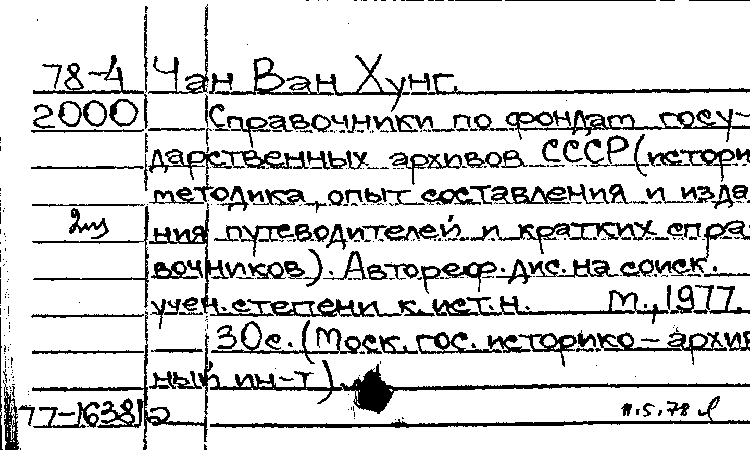 78-4 Чан Ван Хунг.
2000 Справочники по фондам госу-
дарственных архивов СССР (истори
методика, опыт составления и изда
2иу ния путеводителей и кратких спра
вочников). Автореф. дис. на соиск.
учен. степени к. ист. н. М., 1977.
30с. (Моск. гос. историко-архив
ный ин-т).
77-16381б 11.5.78